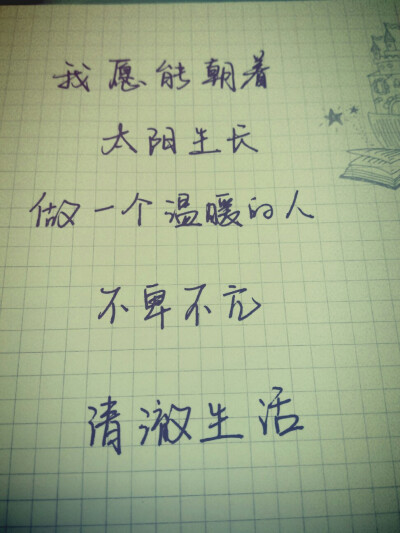 我愿能朝着
太阳生长
做一个温暖的人
不卑不亢
清澈生活